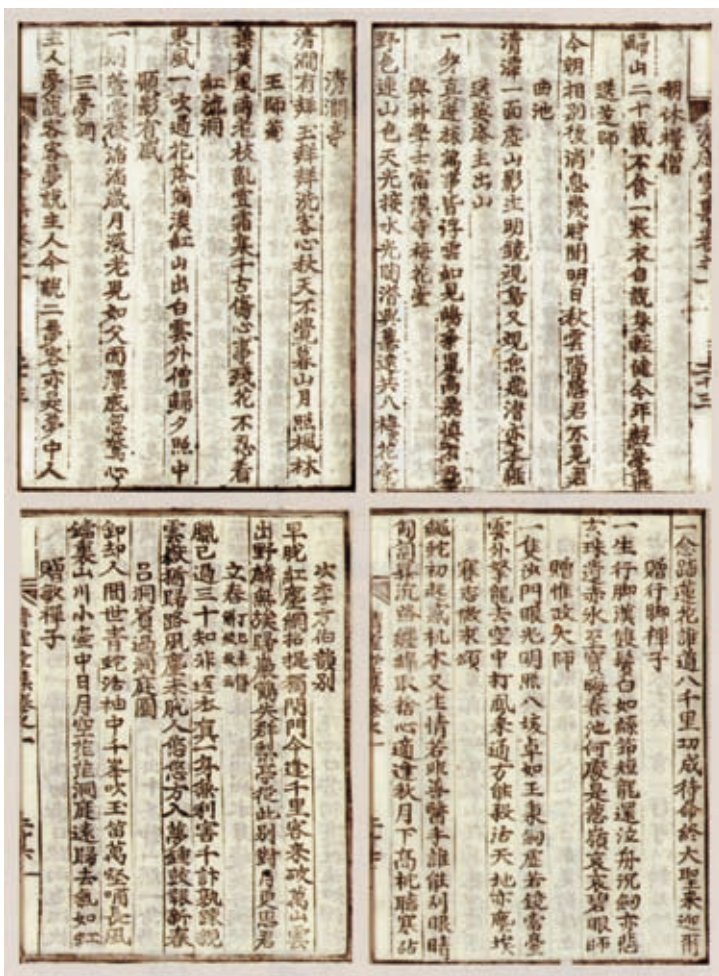 清虛堂集卷之一
二十三
贈休糧僧
歸山二十載不食一寒衣自說身輕健今年
送芝師
今朝相別後消息幾時聞明日秋雲隔思君不見君
曲池
清潭一面虛山影生明鏡視鳥又觀魚飛潛亦本性
送英庵主出山
一身直道 萬事皆浮雲如見 高飛慎不
與朴學士宿漢寺梅花堂
野色連山色天光接水光陶潛與惠遠共入梅花堂
清澗亭
清澗有群玉群群洗客心秋天不覺暮山月照楓林
王師菴
葉黃風雨老枝亂雪霜寒千古傷心事殘花不忍看
紅流洞
東風一吹過花落滿溪紅山出白雲外僧歸夕照中
顧影有感
一別萱堂後滔滔歲月深老兒如父面潭底忽驚心
三夢詞
主人夢說客客夢說主人今說二夢客亦是夢中人
一念踏蓮花誰道八千里功成待命終大聖來迎爾
贈行脚禪子
一生行脚漢雙鬢白如絲節短龍還泣舟沉劒亦悲
玄珠遺赤水至寶晦春池何處是葱嶺哀哀碧眼師
贈惟政大師
一隻沙門眼光明照八垓卓如王秉釼虛若鏡當臺
雲外拏龍去空中打鳳來通方能殺活天地亦塵埃
賽志徹求頌
繩蛇初起惑杌木又生情若非善醫手誰能刮眼睛
昇沉路 取捨心適逢秋月下高枕聽寒砧
次李方伯韻別
早脫紅塵網招提獨閉門今逢千里客來破萬山雲
出野麟無族歸巢鶴失群梨亭從此別對月更思君
立春
臘已過三十知非返本真一身無利害千計孰疎親
雲嶽猶歸路風塵未脫人倚窓方入夢鍾鼓報新春
呂洞賓過洞庭圖
卸却人間世青蛇活袖中千峯吹玉笛萬壑嘯長風
鑪裏山川小壷中日月空茫茫洞庭遠歸去氣如虹
贈敬禪子